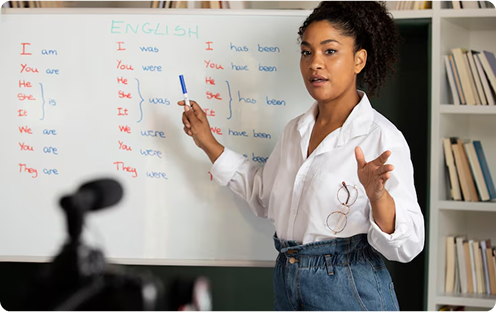 ENGLISH
I am
You are
He
She is
It
We are
You are
They are
I was
You were
He
She was
It
We were
You were
They were
I has been
You have been
He
She has been
It
We have been
been